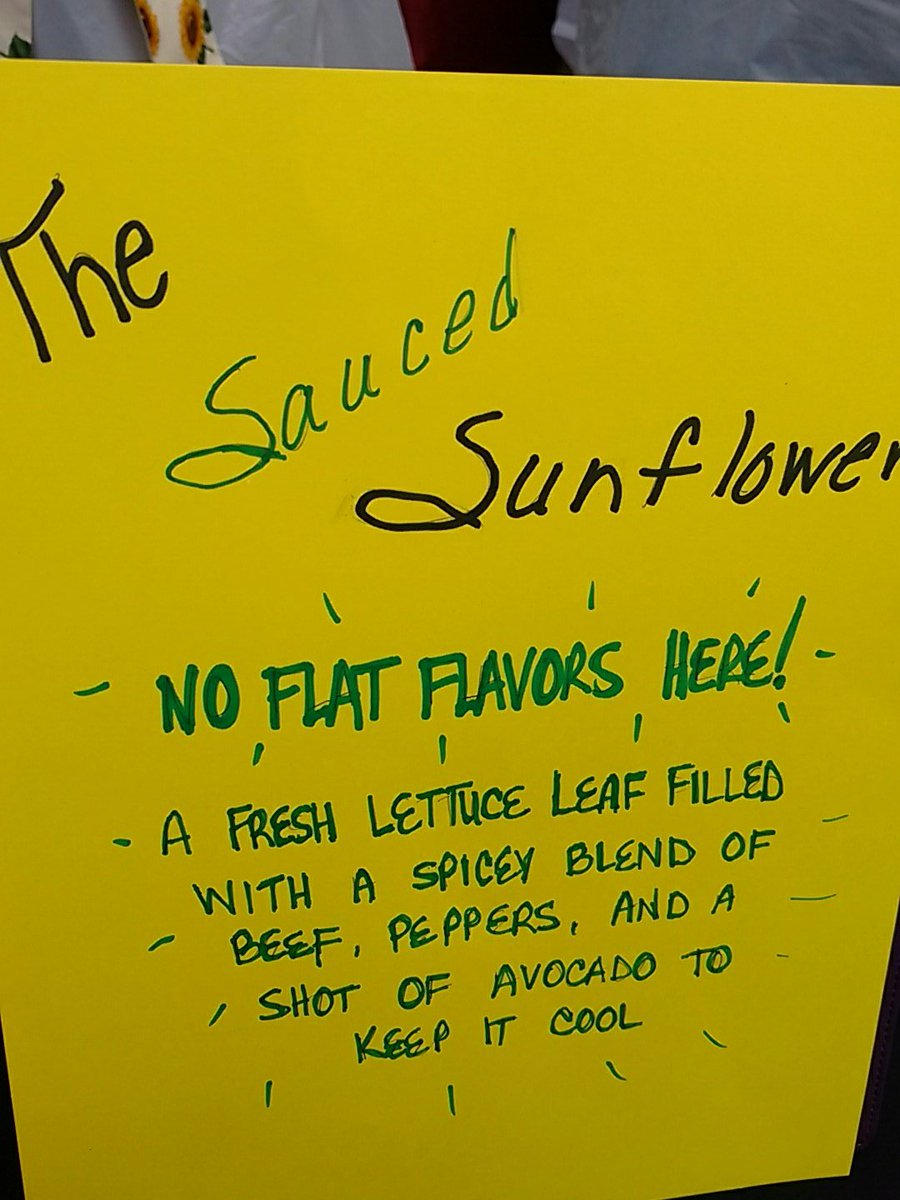 The
Sauced
Sunflower
NO FLAT FLAVORS HERE!
A FRESH LETTUCE LEAF FILLED
WITH A SPICEY BLEND OF
BEEF, PEPPERS, AND A
SHOT OF AVOCADO TO
KEEP IT COOL